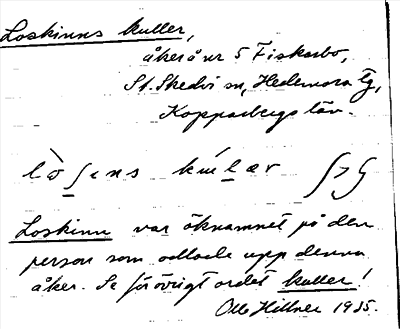 Loskinns kuller,
åker å nr 5 Fiskarbo,
St. Skedvi sn, Hedemora tg,
Kopparbergs län.
Loskinn var öknamnet på den
person som odlade upp denna
åker. Se för övrigt ordet kuller!
Olle Hillner 1935.